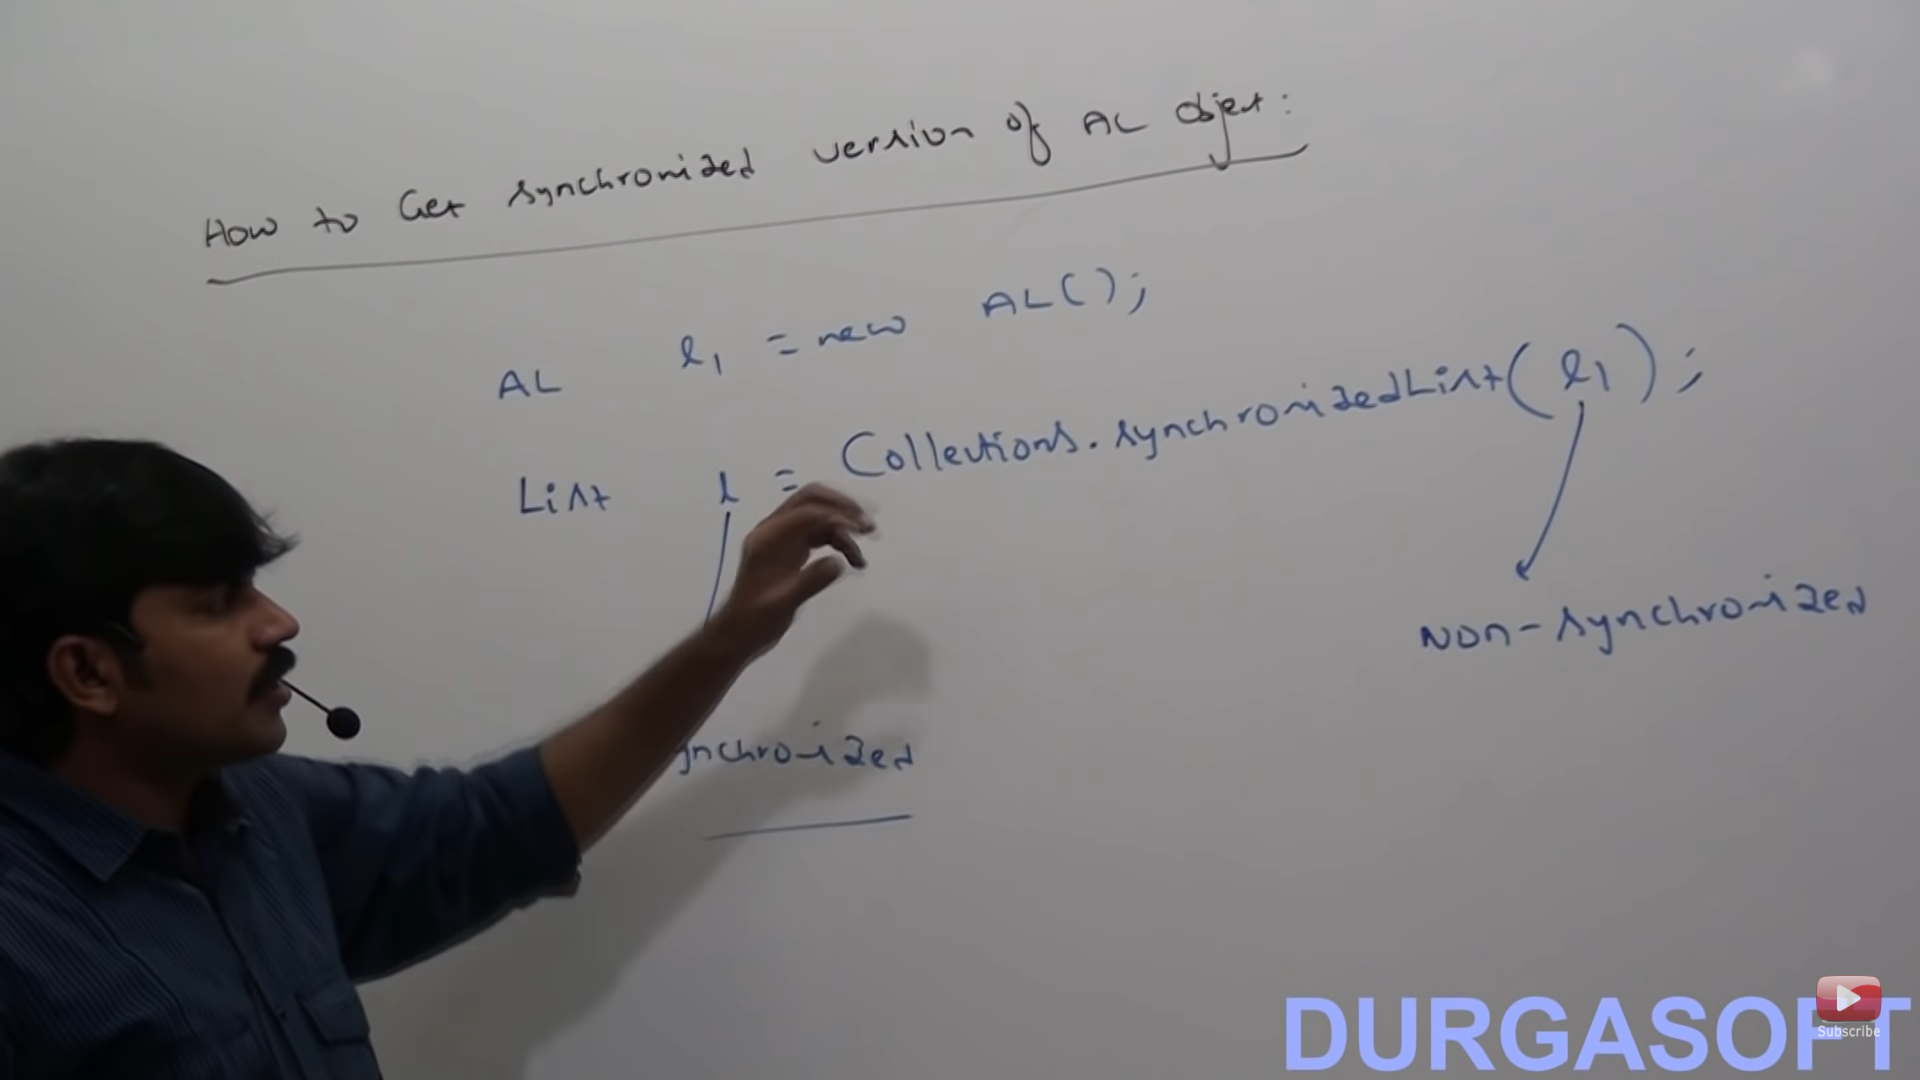 How to Get synchronized version of AL object:
AL l1 = new AL();
List l = Collections.synchronizedList(l1);
Non-synchronized
ynchronized
DURGASOFT
Subscribe